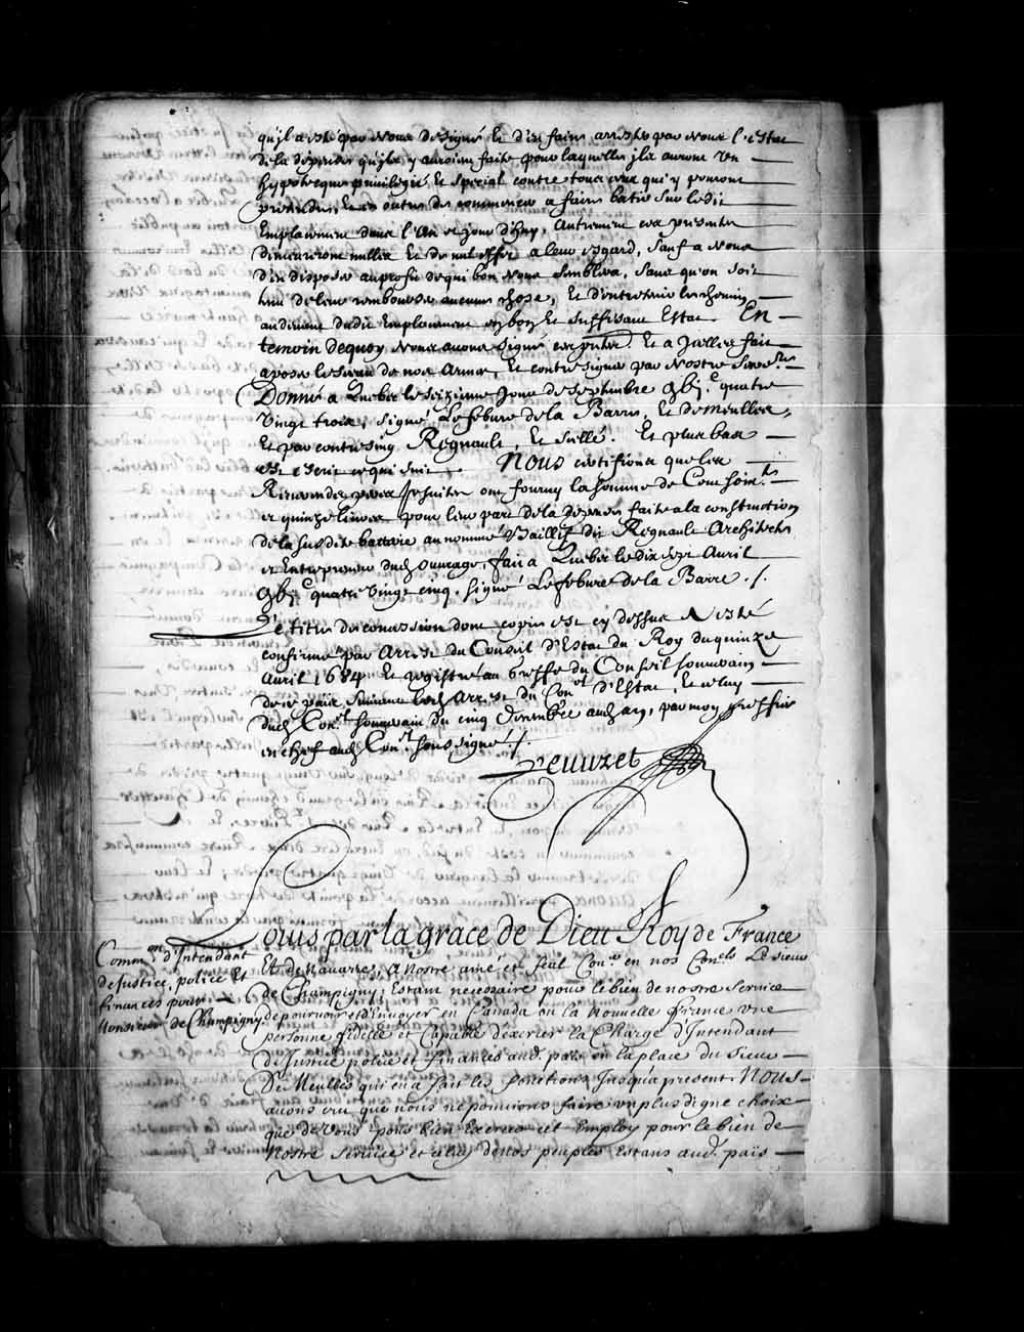 qu'il a esté par nous designé Et d'en faire arrester par nous l'estat
de la depense qu'ils y auroient faite pour laquelle ils auront Un
hypotecque privilegié, Et special contre tous ceux qui y pouront
pretendre, Et en outre de commencer a faire batir sur ledit
Emplacement dans l'An ce jour d'huy, Autrement ces presentes
demeureront nulles Et de nul effet a leur esgard, sauf a nous
d'en disposer au profit de qui bon nous semblera, sans qu'on soit
tenu de leur rembourser aucune chose, Et d'entretenir les chemins
au devant dudit Emplacement en bon Et suffisant Estat. En
temoin dequoy nous avons signé ces pntes. Et a Icelles fait
aposer le sceau de nos Armes, Et contresigner par Nostre Secre.re
Donné a Quebec le seiziéme jour de Septembre gbj.c quatre
Vingt trois, signé Lefebure de la Barre, Et DeMeulles,
Et par contreseing Regnault, Et scellé. Et plus bas
est escrit ce qui suit. Nous certifions que les
Reverendes peres Jesuites ont fourny la somme de Cent soix.te
et quinze livres pour leur part de la depense faite a la construction
de la susdite batterie au nommé Baillif dit Regnault Architecte
et Entrepreneur dud. ouvrage, fait a Quebec le dix sept Avril
gbj.c quatre Vingt cinq. Signé Lefebure de la Barre ./.
Le titre de concession dont copie est cy dessus A esté
confirmé par Arrest du Conseil d'Estat du Roy du quinze
Avril 1684 Et registré au Greffe du Conseil souverain
de ce païs suivant led. Arrest du Con.el d'Estat, Et celuy
dud. Con.el souverain du cinq decembre aud. an, par moy greffier
en chef aud. Con.el soussigné ./.
Peuvret
Louis par la grace de Dieu Roy de France
Comm.on d'Intendant
de Justice, police Et
finances pour
Monsieur de Champigny.
Et de navarre, A Nostre amé et feal Con.er en nos Con.els Le sieur
de Champigny, Estant necessaire pour le bien de nostre service
de pourvoir et d'Envoyer en Canada ou la Nouvelle france une
personne fidelle et Capable d'exercer la Charge d'Intendant
de Justice police et finances aud. païs en la place du sieur
De Meulles qui en a fait les fonctions Jusqu'a present. Nous
avons cru que nous ne pouvions faire un plus digne choix
que de Vous pour bien Exercer cet Employ pour le bien de
Nostre Service et celuy de nos peuples Estans aud. païs